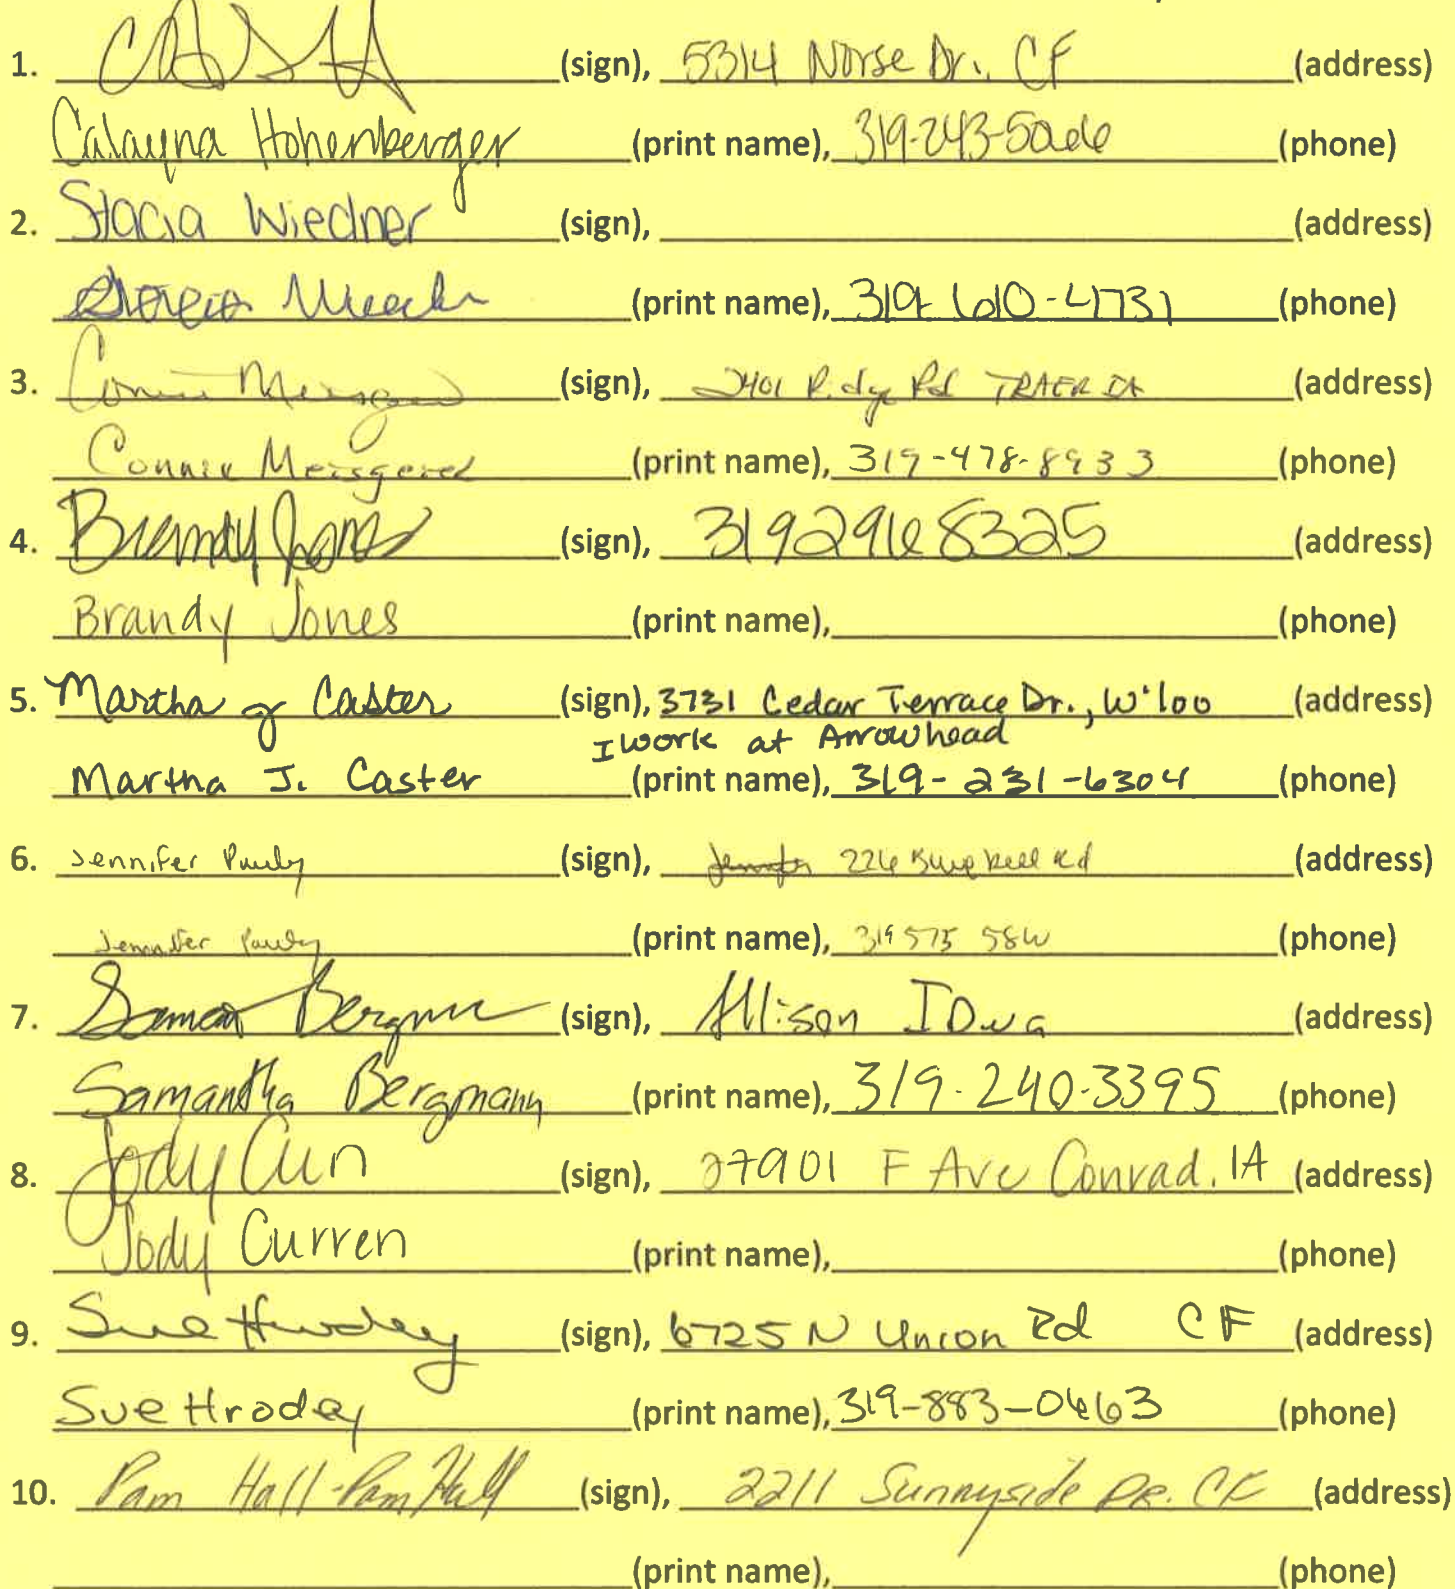 1. (sign), 5314 Norse Dr., CF (address)
Calayna Hohenberger (print name), 319-243-5026 (phone)
2. Stacia Wiedner (sign), (address)
(print name), 319 610-4731 (phone)
3. Connie (sign), 2401 Ridge Rd TRAER IA (address)
Connie Meisgeier (print name), 319-478-8933 (phone)
4. Brandy Jones (sign), 3192968325 (address)
Brandy Jones (print name), (phone)
5. Martha J Caster (sign), 3731 Cedar Terrace Dr., W'loo (address)
I work at Arrowhead
Martha J. Caster (print name), 319-231-6304 (phone)
6. Jennifer Pauly (sign), 226 Rd (address)
Jennifer Pauly (print name), 319 575 (phone)
7. (sign), Allison IOwa (address)
Samantha Bergmann (print name), 319-240-3395 (phone)
8. Jody (sign), 27901 F Ave Conrad, IA (address)
Jody Curren (print name), (phone)
9. Sue Hrodey (sign), 6725 N Union Rd CF (address)
Sue Hrodey (print name), 319-883-0463 (phone)
10. Pam Hall-Pam Hall (sign), 2211 Sunnyside DR. CF (address)
(print name), (phone)